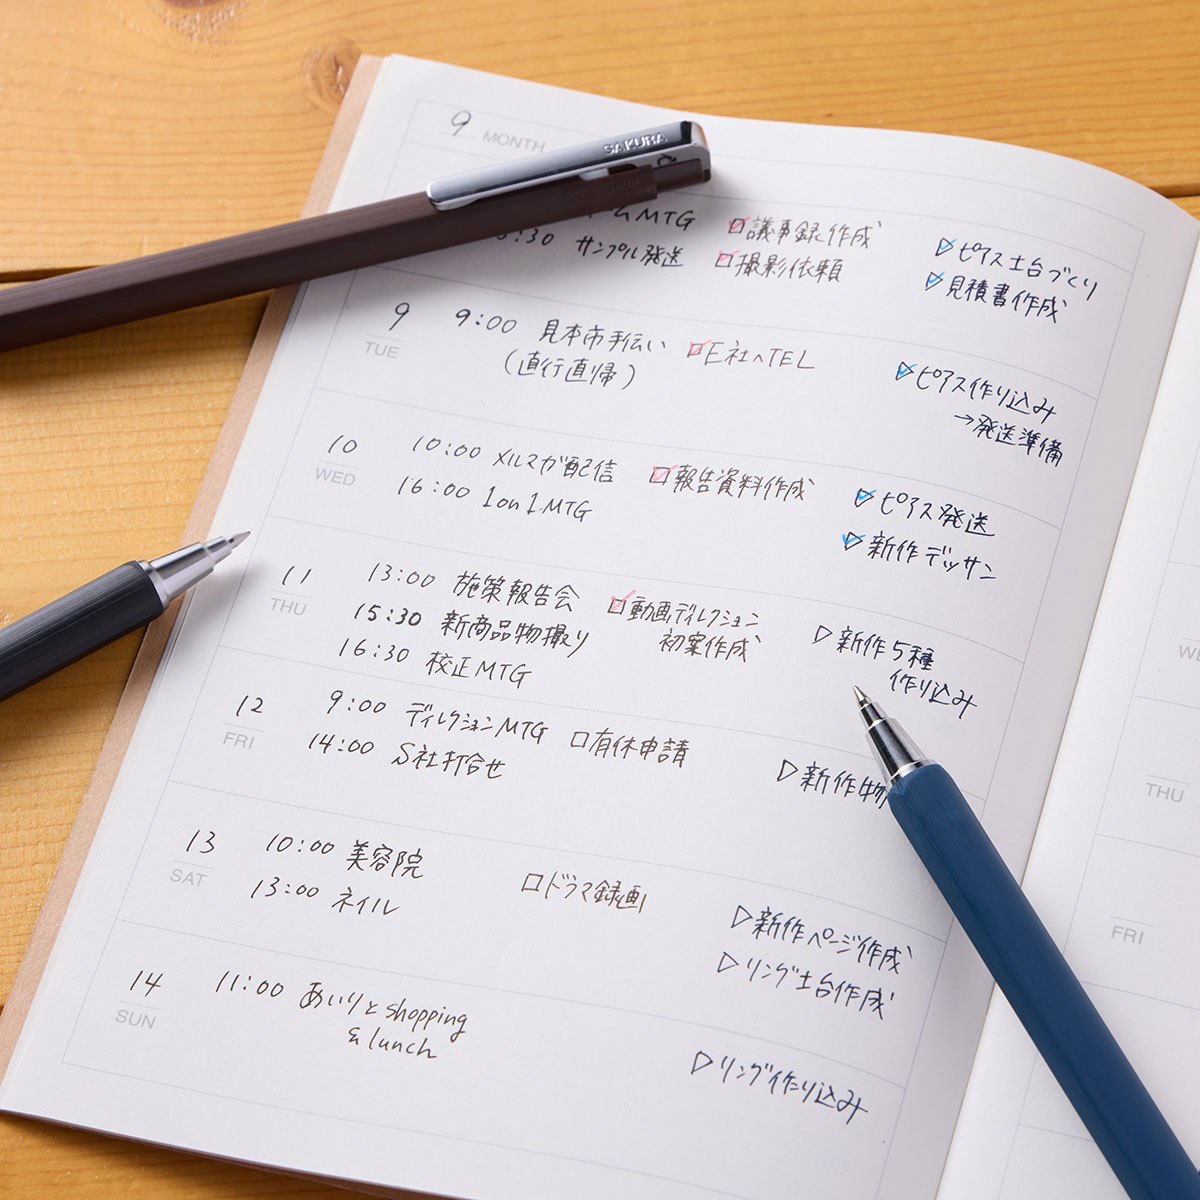 9 MONTH
SAKURA
ムMTG
:30 サンプル発送
☑議事録作成
☑撮影依頼
ピアス土台づくり
見積書作成
9 TUE
9:00 見本市手伝い
(直行直帰)
☑E社へTEL
ピアス作り込み
→発送準備
10 WED
10:00 メルマガ配信
16:00 1on1MTG
☑報告資料作成
ピアス発送
新作デッサン
11 THU
13:00 施策報告会
15:30 新商品物撮り
16:30 校正MTG
☑動画ディレクション
初案作成
▷新作5種
作り込み
12 FRI
9:00 ディレクションMTG
14:00 S社打合せ
□有休申請
▷新作物
13 SAT
10:00 美容院
13:00 ネイル
□ドラマ録画
▷新作ページ作成
▷リング土台作成
14 SUN
11:00 あいりとshopping
& lunch
▷リング作り込み
THU
FRI